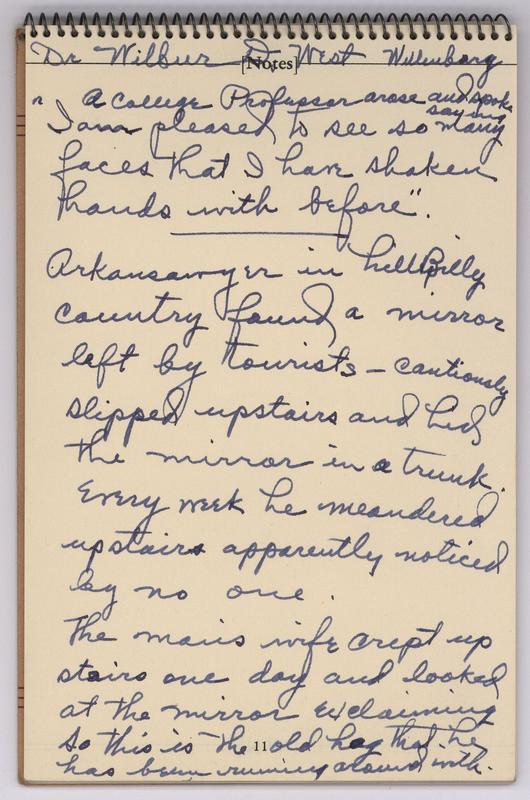 Dr Wilbur D. West Willenborg
[Notes]
" A College Professor arose and spoke
saying
I am pleased to see so many
faces that I have shaken
hands with before".
Arkansawyer in hillBilly
country found a mirror
left by tourists – cautiously
slipped upstairs and hid
the mirror in a trunk.
Every week he meandered
upstairs apparently noticed
by no one.
The mans wife crept up
stairs one day and looked
at the mirror exclaiming
So this is the old hag that he
11
has been running around with.